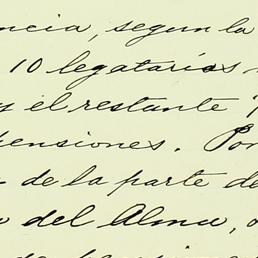 ncia, segun la
10 legatarios
y el restante
pensiones. Por
de la parte de
del Alma,